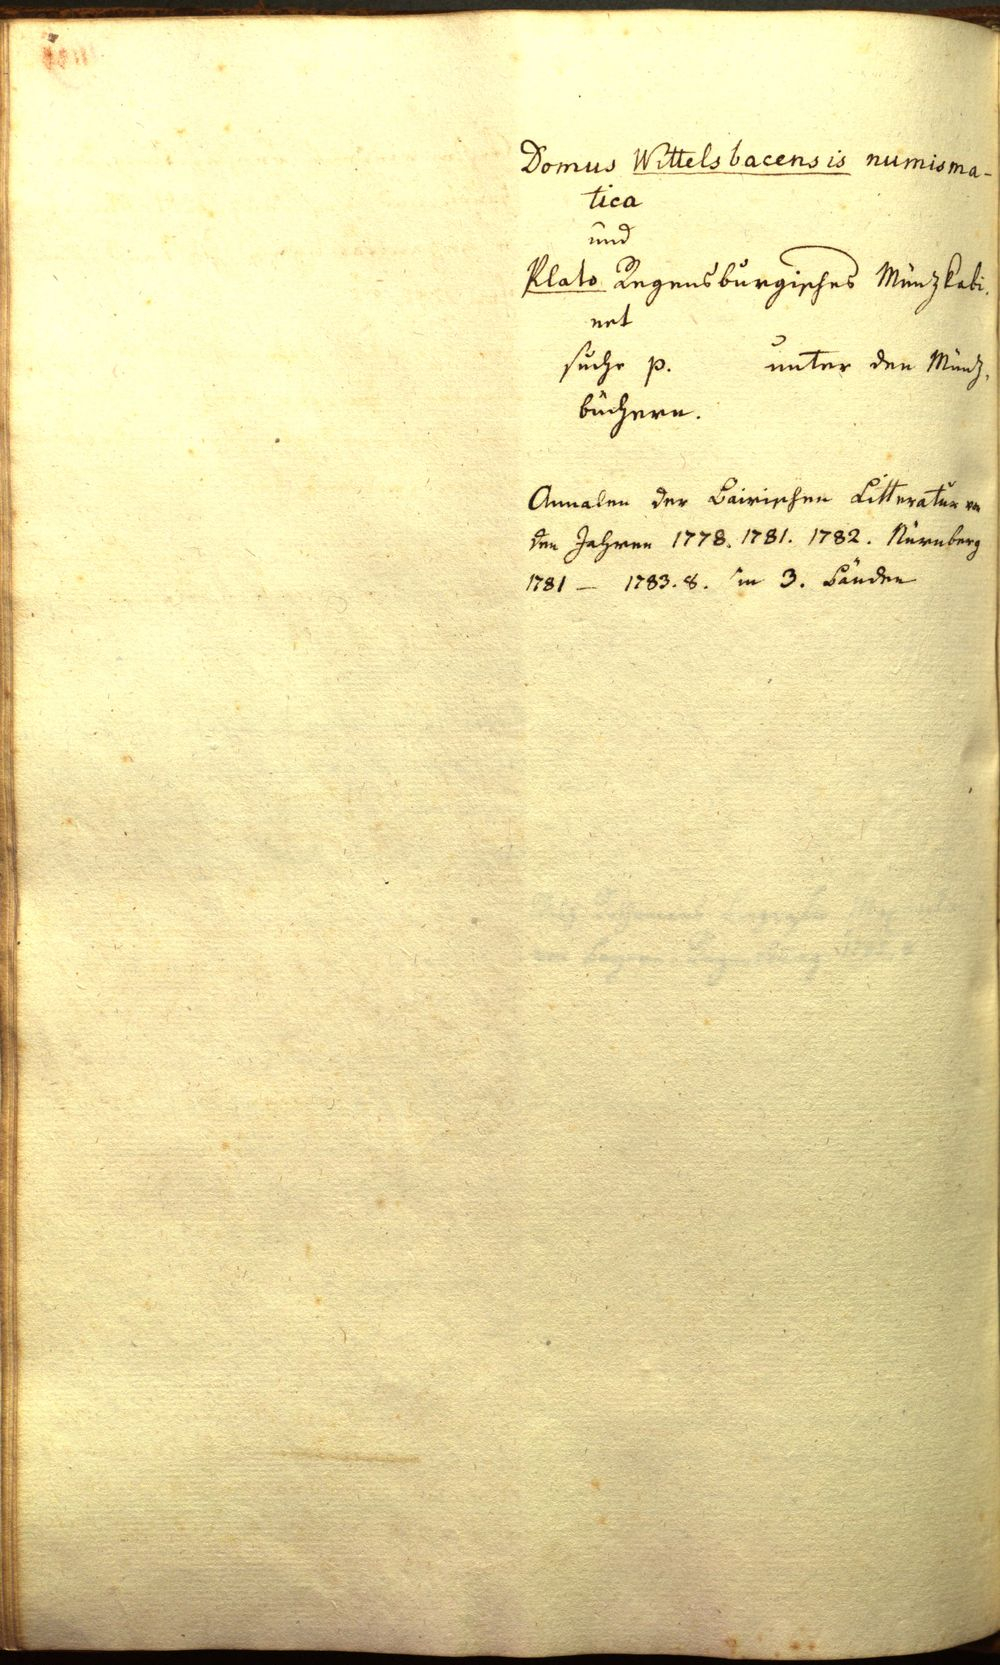 Domus Wittelsbacensis numisma-
tica
und
Plato Regensburgisches Münzkabi-
net
suche p. unter den Münz-
büchern.
Annalen der Bairischen Litteratur von
den Jahren 1778. 1781. 1782. Nürnberg
1781 — 1783. 8. in 3. Bänden